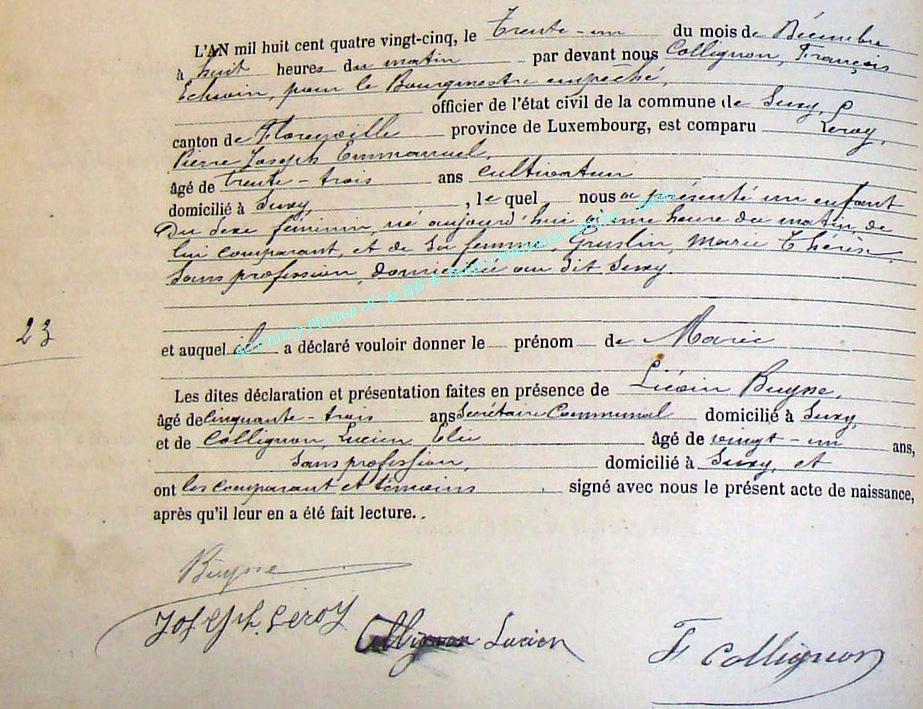 L'AN mil huit cent quatre vingt-cinq, le trente-un du mois de Décembre
à huit heures du matin par devant nous Collignon, François
Echevin, pour le Bourgmestre empeché,
officier de l'état civil de la commune de Suxy,
canton de Florenville province de Luxembourg, est comparu Leroy,
Pierre Joseph Emmanuel,
âgé de trente-trois ans cultivateur
domicilié à Suxy, , le quel nous a présenté un enfant
Du sexe féminin, né aujourd'hui à une heure du matin de
lui comparant, et de sa femme, Gruslin, Marie Thérèse
Sans profession, domiciliée au dit Suxy.
23
et auquel il a déclaré vouloir donner le prénom de Marie
Les dites déclaration et présentation faites en présence de Buysse,
âgé de Cinquante-trois ans Secrétaire Communal domicilié à Suxy,
et de Collignon, Lucien Elie âgé de vingt-un ans,
Sans profession, domicilié à Suxy, et
ont les comparant et témoins signé avec nous le présent acte de naissance,
après qu'il leur en a été fait lecture.
Buysse
Joseph Leroy
Collignon Lucien
F Collignon